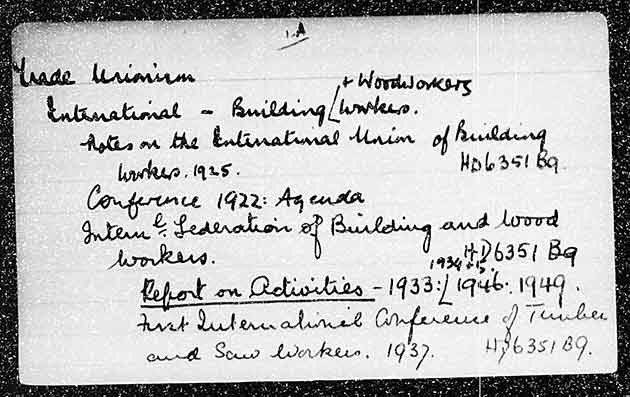 1.A
Trade Unionism
+ Woodworkers
International - Building / Workers.
Notes on the International Union of Building
Workers. 1925. HD6351 B9.
Conference 1922: Agenda
Internl. Federation of Building and Wood
Workers. HD6351 B9
1934 + 35.
Report on Activities - 1933: / 1946. 1949.
First International Conference of Timber
and Saw Workers. 1937. HD6351 B9.